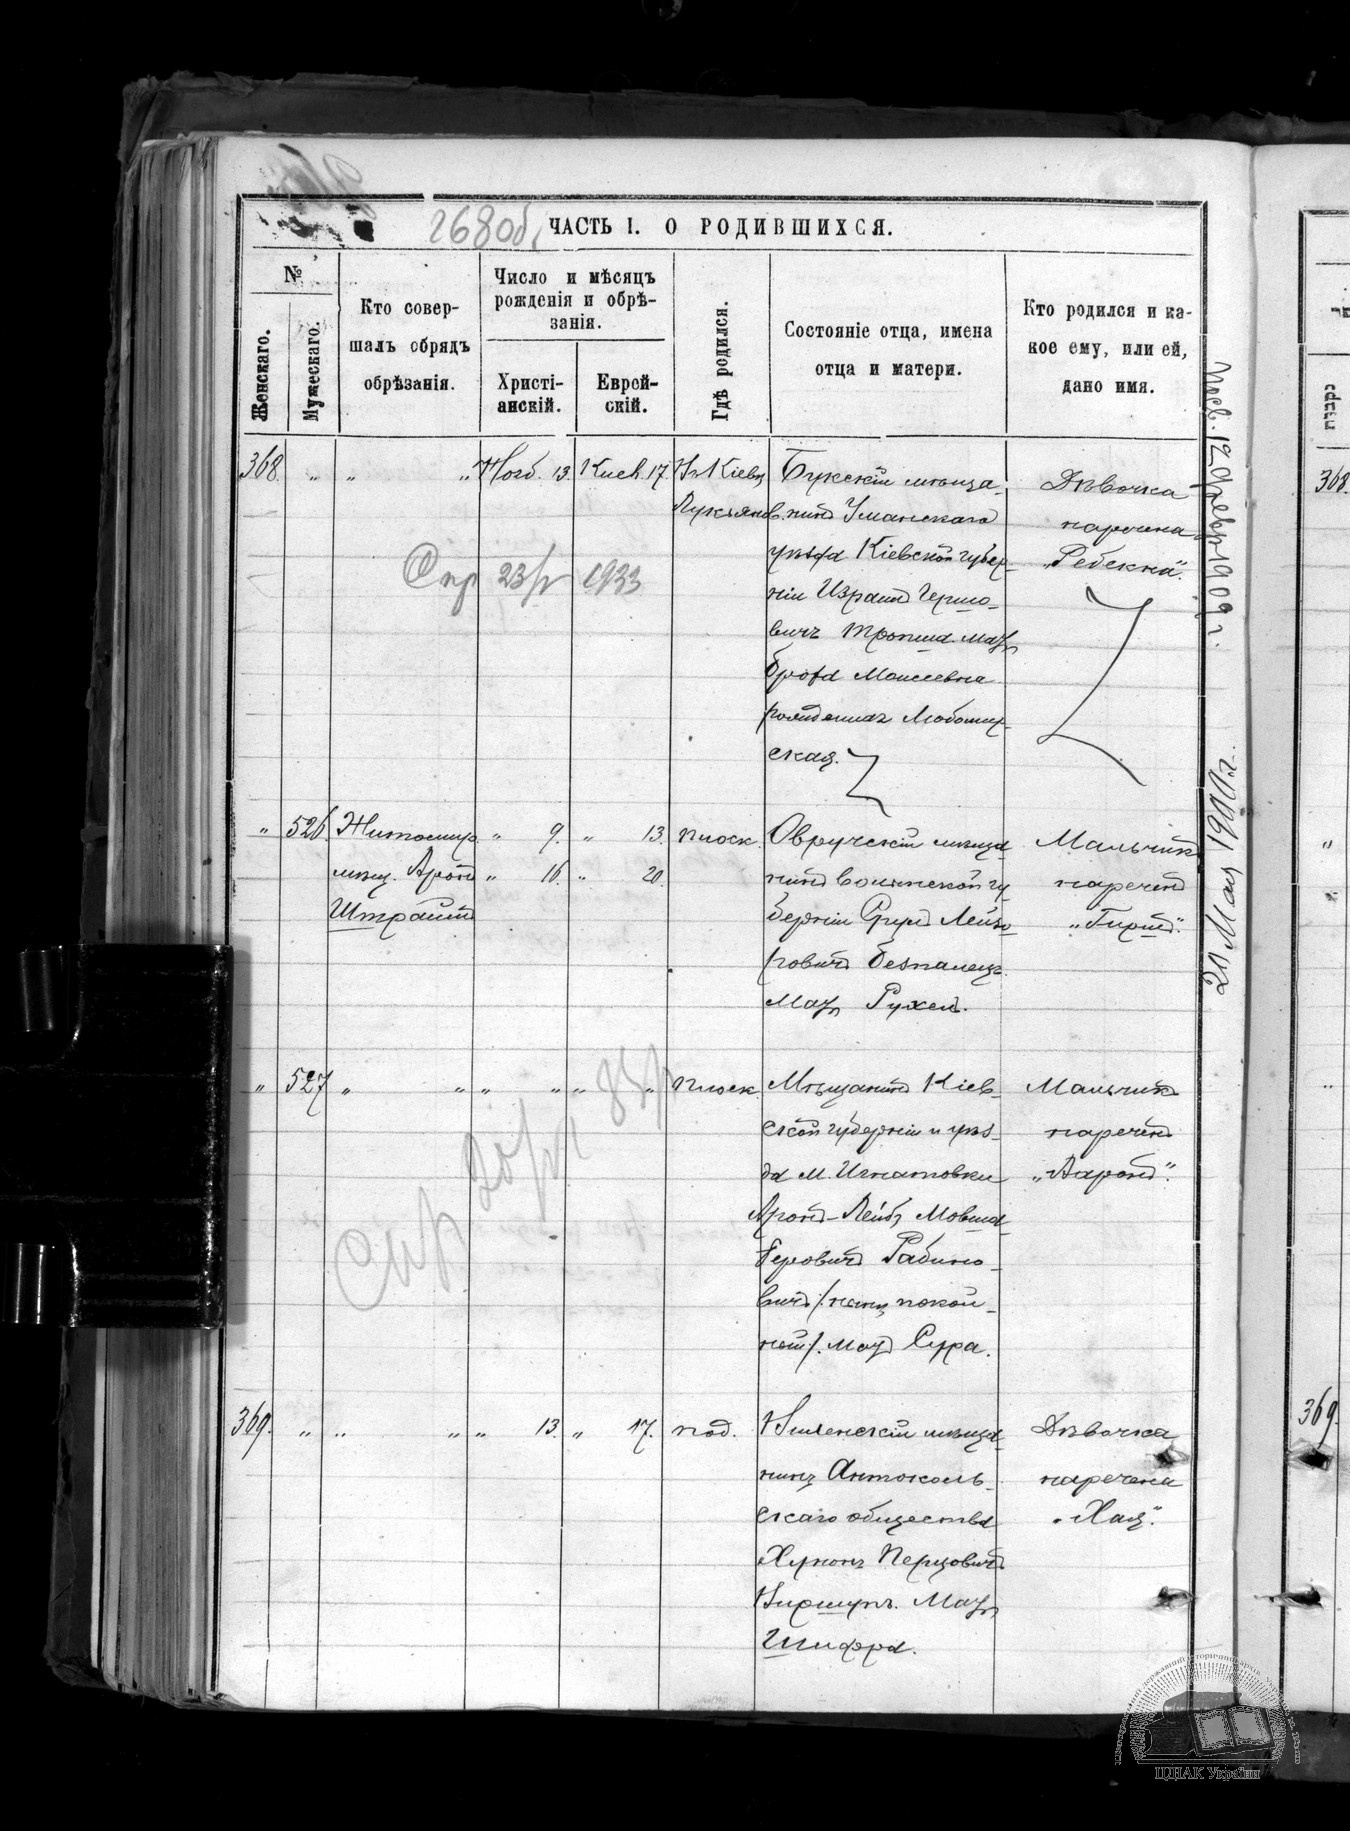 268 об.
ЧАСТЬ I. О РОДИВШИХСЯ.
№
Женскаго.
Мужескаго.
Кто совер-
шалъ обрядъ
обрѣзанія.
Число и мѣсяцъ
рожденія и обрѣ-
занія.
Христі-
анскій.
Еврей-
скій.
Гдѣ родился.
Состояніе отца, имена
отца и матери.
Кто родился и ка-
кое ему, или ей,
дано имя.
368. " " " Нояб. 13. Кисл. 17. Въ Кіевѣ
Лукьянов.
Букскій мѣща-
нинъ Уманскаго
уѣзда Кіевской губер-
ніи Израиль Гершо-
вичъ Мать
Моисеевна
рожденная Любомир-
ская.
Дѣвочка
наречена
„Ребекка“.
Спр 23/V 1933
" 526. Житомир. " 9. " 13. Плоск.
мѣщ. Аронъ " 16. " 20.
Овручскій мѣща-
нинъ Волынской гу-
берніи Лейзо-
ровичъ Безпалецъ.
Мать Рухель.
Мальчикъ
нареченъ
" 527 " " " " " " Плоск.
Мѣщанинъ Кіев-
ской губерніи и уѣз-
да м. Игнатовки
Аронъ-Лейбъ Мовша-
Беровичъ Рабино-
вичъ /: нынѣ покой-
ный :/. Мать Сура.
Мальчикъ
нареченъ
„Ааронъ“.
369. " " " " 13. " 17. Под.
Виленскій мѣща-
нинъ Антоколь-
скаго общества
Перцовичъ
Киршунъ. Мать
Шифра.
Дѣвочка
наречена
„Хая“.
12 1909 г.
20 Мая 1911 г.
נקבות
368.
"
"
369.
ЦДІАК України